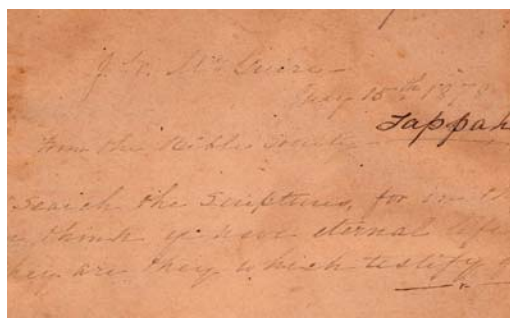 July 15th 187
Tappah
from the Bible Society
Search the Scriptures, for in th
think ye have eternal life
hey are they which testify